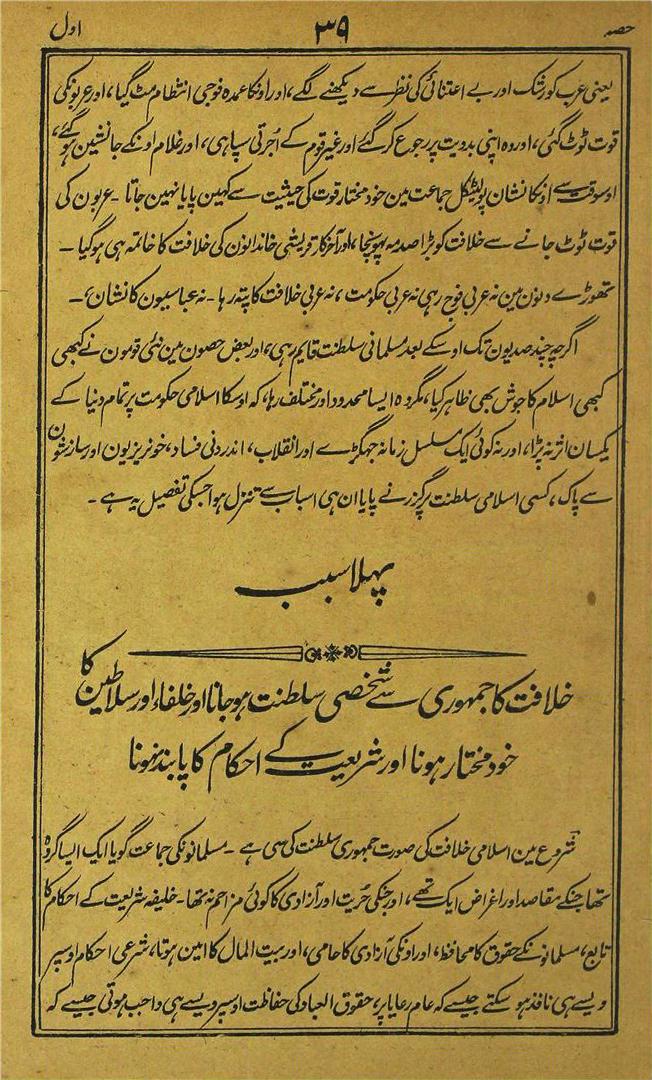 حصہ ۳۹ اول
یعنی عرب کو رشک اور بے اعتنائی کی نظر سے دیکھنے لگے، اور اونکا عمدہ فوجی انتظام مٹ گیا، اور عربونکی
قوت ٹوٹ گئی، اور وہ اپنی بدویت پر رجوع کر گئے اور غیر قوم کے اُجرتی سپاہی، اور غلام اونکے جانشین ہو گئے،
اوسوقت سے اونکا نشان پولیٹکل جماعت مین خود مختار قوت کی حیثیت سے کہین پایا نہین جاتا ۔ عربون کی
قوت ٹوٹ جانے سے خلافت کو بڑا صدمہ پہونچا، اور آخر کار قریشی خاندانون کی خلافت کا خاتمہ ہی ہو گیا ۔
تھوڑے دنون مین نہ عربی فوج رہی نہ عربی حکومت، نہ عربی خلافت کا پتہ رہا ۔ نہ عباسیون کا نشان، ۔
اگرچہ چند صدیون تک اوسکے بعد مسلمانی سلطنت قایم رہی، اور بعض حصون مین نئی قومون نے کبھی
کبھی اسلام کا جوش بھی ظاہر کیا، مگر وہ ایسا محدود اور مختلف رہا، کہ اوسکا اسلامی حکومت پر تمام دنیا کے
یکسان اثر نہ پڑا، اور نہ کوئی ایک مسلسل زمانہ جھگڑے اور انقلاب، اندرونی فساد، خونریزیون اور سازشون
سے پاک، کسی اسلامی سلطنت پر گزرنے پایا ان ہی اسباب سے تنزل ہوا جسکی تفصیل یہ ہے ۔
پہلا سبب
خلافت کا جمہوری سے شخصی سلطنت ہو جانا اور خلفاء اور سلاطین کا
خود مختار ہونا اور شریعت کے احکام کا پابند نہونا
شروع مین اسلامی خلافت کی صورت جمہوری سلطنت کی سی ہے ۔ مسلمانونکی جماعت گویا ایک ایسا گروہ
تھا جنکے مقاصد اور اغراض ایک تھے، اور جنکی حُریت اور آزادی کا کوئی مزاحم نہ تھا ۔ خلیفہ شریعت کے احکام کا
تابع، مسلمانونکے حقوق کا محافظ، اور اونکی آزادی کا حامی، اور بیت المال کا امین ہوتا، شرعی احکام اوسپر
ویسے ہی نافذ ہو سکتے جیسے کہ عام رعایا پر، حقوق العباد کی حفاظت اوسپر ویسے ہی واجب ہوتی جیسے کہ